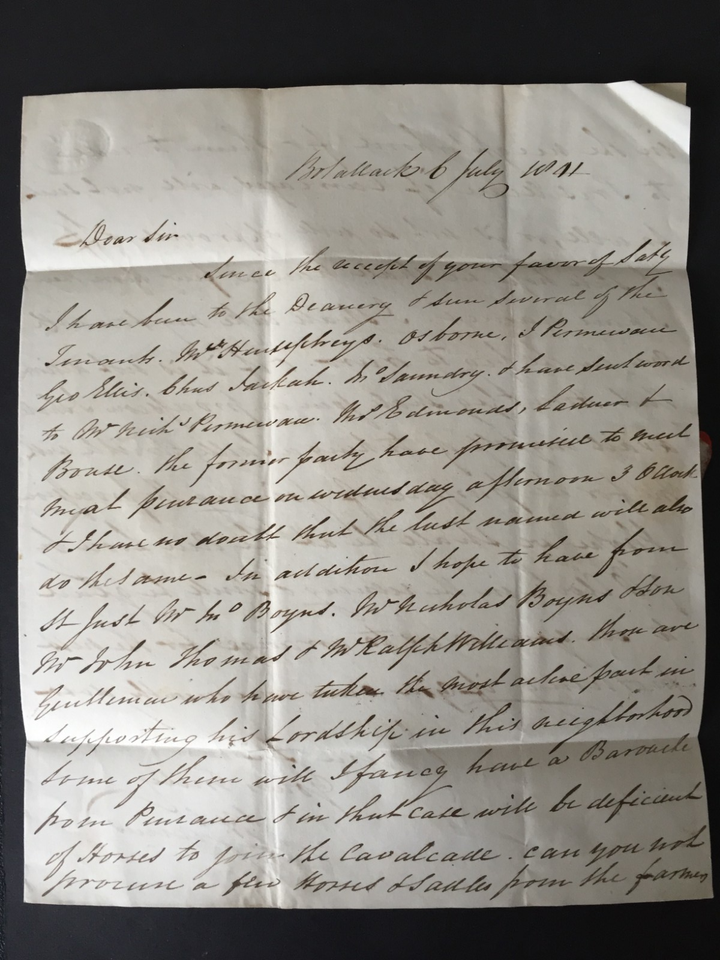 Botallack 6 July 1841
Dear Sir
Since the receipt of your favor of Sat'y
I have been to the Deanery & seen several of the
Tenants. Mr Humphreys. Osborne, J Permewan
Geo Ellis. Chas Jackah. Jno Saundry. & have sent word
to Mr Nichs Permewan. Thos Edmonds, Ladner &
Bouse. the former party have promised to meet
me at Penzance on wednesday afternoon 3 O Clock
& I have no doubt that the last named will also
do the same - In addition I hope to have from
St Just Mr Jno Boyns. Mr Nicholas Boyns & Son
Mr John Thomas & Mr Ralph Williams. these are
Gentlemen who have taken the most active part in
supporting his Lordship in this neighborhood
some of them will I fancy have a Barouche
from Penzance & in that case will be deficient
of Horses to join the Cavalcade. can you not
procure a few Horses & Sadles from the farmers